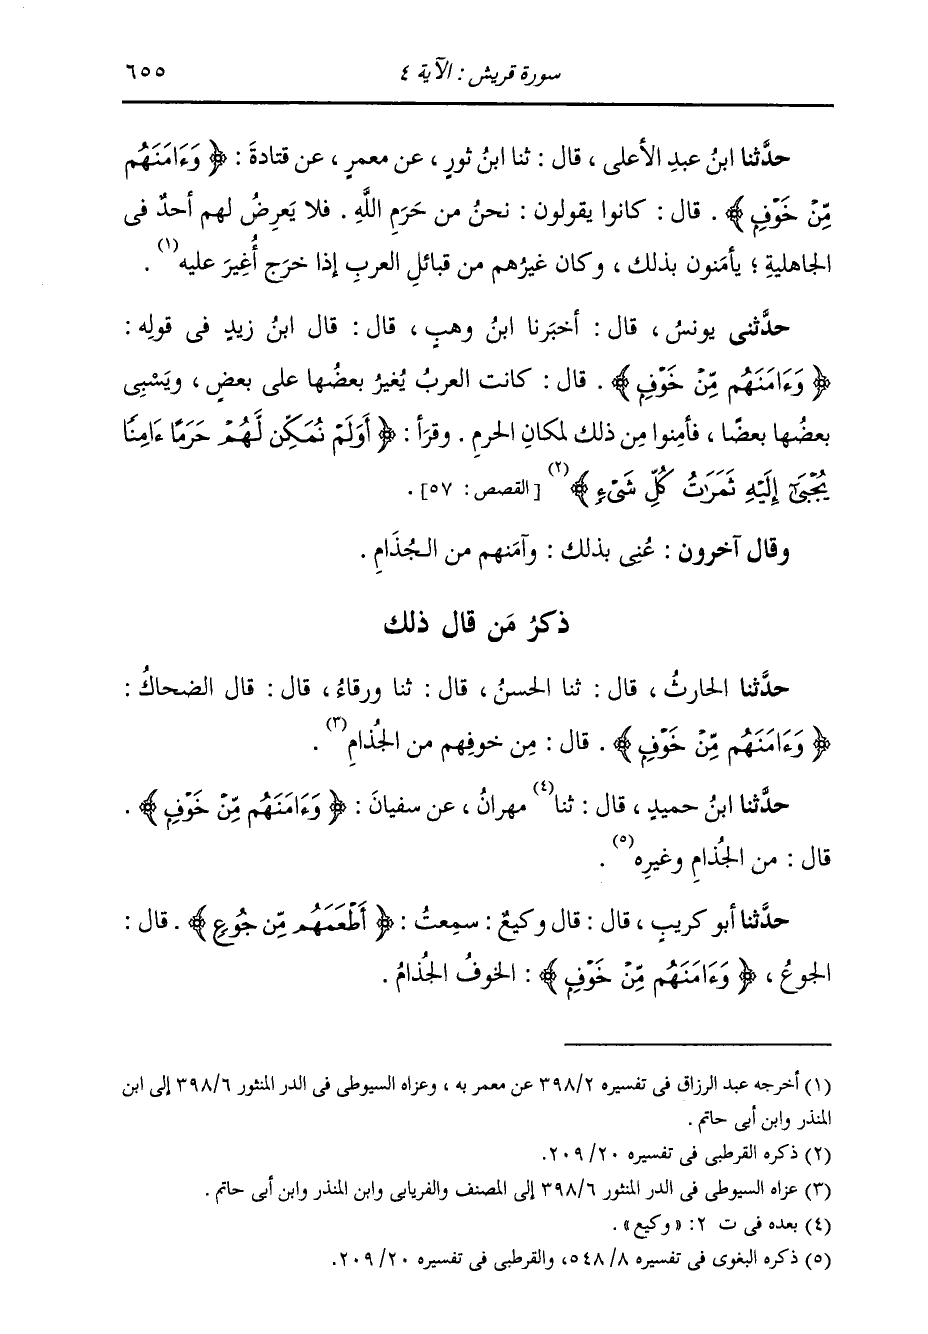 سورة قريش : الآية ٤ ٦٥٥
حدَّثنا ابنُ عبدِ الأعلى ، قال : ثنا ابنُ ثورٍ ، عن معمرٍ ، عن قتادةَ : ﴿ وَءَامَنَهُم
مِّنْ خَوْفٍ ﴾ . قال : كانوا يقولون : نحنُ من حَرَمِ اللَّهِ . فلا يَعرِضُ لهم أحدٌ فى
الجاهليةِ ؛ يأمَنون بذلك ، وكان غيرُهم من قبائلِ العربِ إذا خرَج أُغِيرَ عليه(١) .
حدَّثنى يونسُ ، قال : أخبَرنا ابنُ وهبٍ ، قال : قال ابنُ زيدٍ فى قولِه :
﴿ وَءَامَنَهُم مِّنْ خَوْفٍ ﴾ . قال : كانت العربُ يُغيرُ بعضُها على بعضٍ ، ويَسْبِى
بعضُها بعضًا ، فأمِنوا مِن ذلك لمكانِ الحرمِ . وقرَأ : ﴿ أَوَلَمْ نُمَكِّن لَّهُمْ حَرَمًا ءَامِنًا
يُجْبَىٰٓ إِلَيْهِ ثَمَرَٰتُ كُلِّ شَىْءٍ ﴾(٢) [القصص : ٥٧] .
وقال آخرون : عُنِى بذلك : وآمَنهم من الجُذَامِ .
ذكرُ مَن قال ذلك
حدَّثنا الحارثُ ، قال : ثنا الحسنُ ، قال : ثنا ورقاءُ ، قال : قال الضحاكُ :
﴿ وَءَامَنَهُم مِّنْ خَوْفٍ ﴾ . قال : مِن خوفِهم من الجُذامِ(٣) .
حدَّثنا ابنُ حميدٍ ، قال : ثنا(٤) مهرانُ ، عن سفيانَ : ﴿ وَءَامَنَهُم مِّنْ خَوْفٍ ﴾ .
قال : من الجُذامِ وغيرِه(٥) .
حدَّثنا أبو كريبٍ ، قال : قال وكيعٌ : سمِعتُ : ﴿ أَطْعَمَهُم مِّن جُوعٍ ﴾ . قال :
الجوعُ ، ﴿ وَءَامَنَهُم مِّنْ خَوْفٍ ﴾ : الخوفُ الجُذامُ .
(١) أخرجه عبد الرزاق فى تفسيره ٣٩٨/٢ عن معمر به ، وعزاه السيوطى فى الدر المنثور ٣٩٨/٦ إلى ابن
المنذر وابن أبى حاتم .
(٢) ذكره القرطبى فى تفسيره ٢٠٩/٢٠.
(٣) عزاه السيوطى فى الدر المنثور ٣٩٨/٦ إلى المصنف والفريابى وابن المنذر وابن أبى حاتم .
(٤) بعده فى ت ٢: « وكيع» .
(٥) ذكره البغوى فى تفسيره ٥٤٨/٨، والقرطبى فى تفسيره ٢٠٩/٢٠.